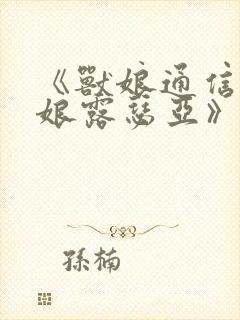 《獸娘通信
娘露瑟亞》
孫楠